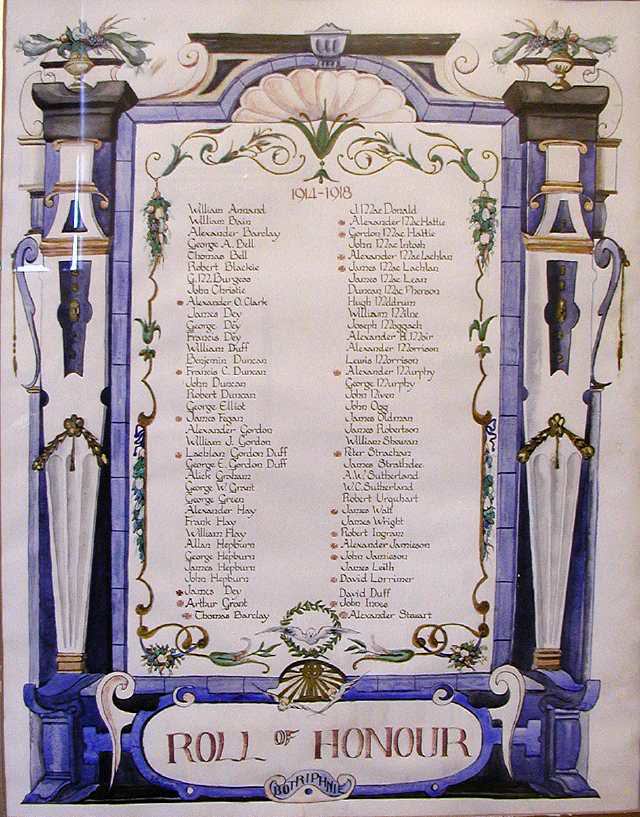 1914-1918
William Annand
William Bain
Alexander Barclay
George A. Bell
Thomas Bell
Robert Blackie
G.M.Burgess
John Christie
Alexander O. Clark
James Dey
George Dey
Francis Dey
William Duff
Benjamin Duncan
Francis C. Duncan
John Duncan
Robert Duncan
George Elliot
James Fegan
Alexander Gordon
William J. Gordon
Lachlan Gordon Duff
George E. Gordon Duff
Alick Graham
George W. Grant
George Green
Alexander Hay
Frank Hay
William Hay
Allan Hepburn
George Hepburn
James Hepburn
John Hepburn
James Dey
Arthur Grant
Thomas Barclay
J. Mac Donald
Alexander Mac Hattie
Gordon Mac Hattie
John Mac Intosh
Alexander Mac Lachlan
James Mac Lachlan
James Mac Lean
Duncan Mac Pherson
Hugh Meldrum
William Milne
Joseph
Alexander Muir
Alexander Morrison
Lewis Morrison
Alexander Murphy
George Murphy
John Niven
John Ogg
James Oldman
James Robertson
William Shewan
Peter Strachan
James Strathdee
A.W. Sutherland
W.C. Sutherland
Robert Urquhart
James Watt
James Wright
Robert Ingram
Alexander Jamieson
John Jamieson
James Leith
David Lorrimer
David Duff
John Innes
Alexander Stewart
ROLL OF HONOUR
BOTRIPHNIE